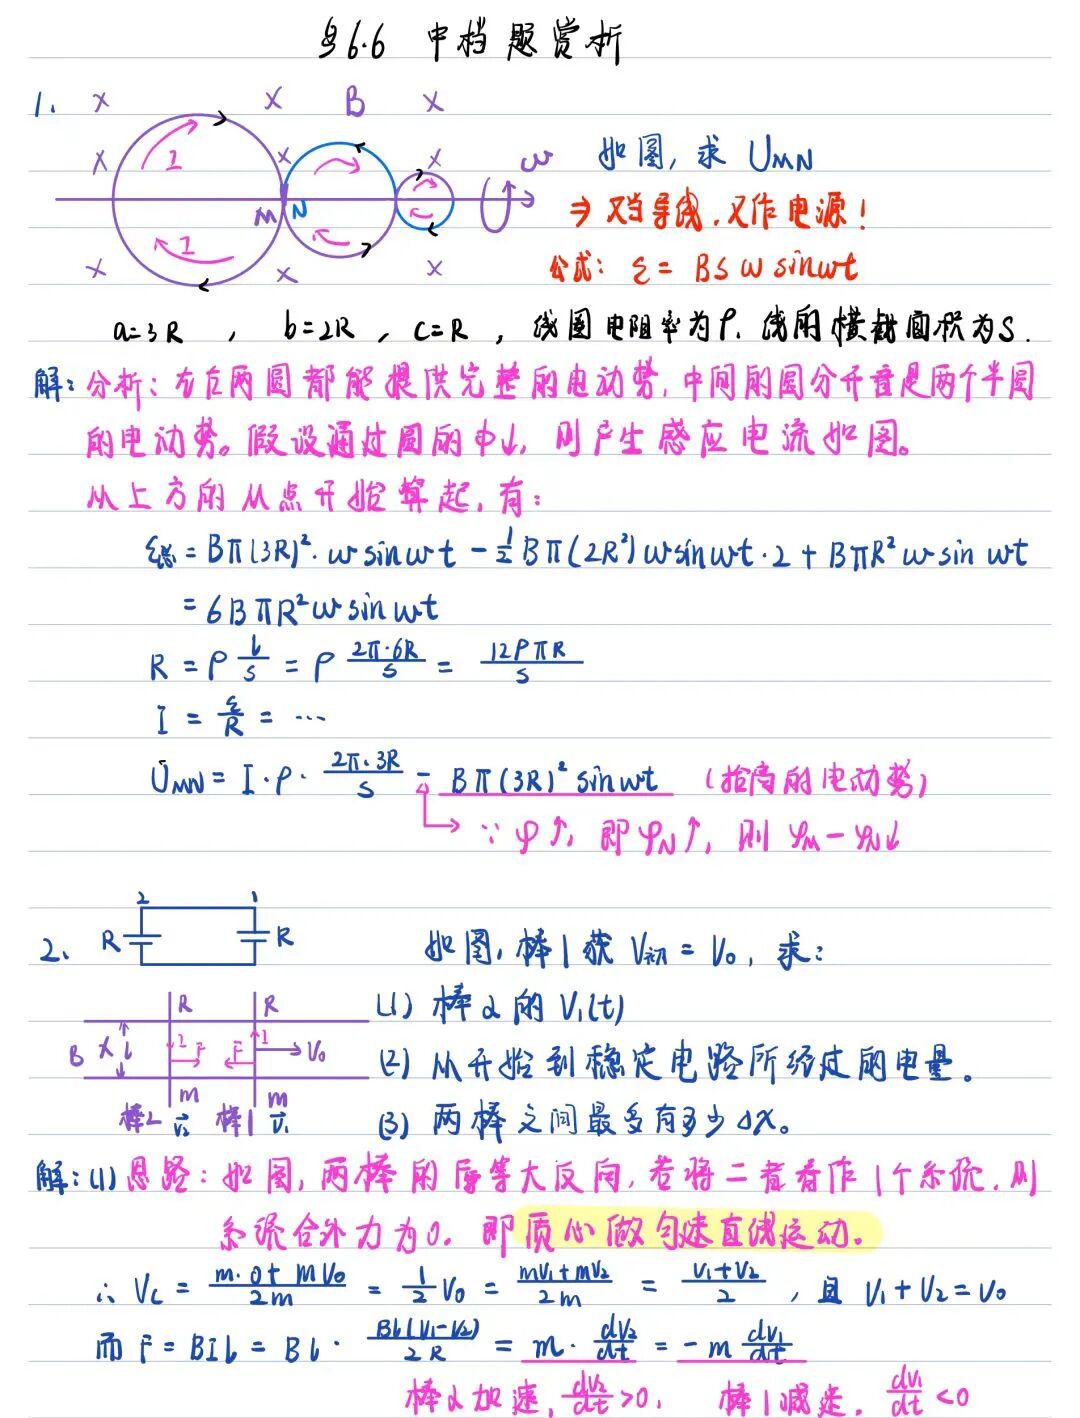 写6.6 中档题赏析
1. × × B × 如图,求 U_MN
× × × ω
I
M N ⇒ 又当导线,又作电源!
I
× × × 公式: ε = BSω sinωt
a=3R , b=2R , c=R , 线圈电阻率为ρ. 线的横截面积为S.
解: 分析: 左右两圆都能提供完整的电动势,中间的圆分开看是两个半圆
的电动势。假设通过圆的中心,则产生感应电流如图。
从上方的从点开始算起,有:
ε总 = Bπ(3R)²·ω sinωt - ½Bπ(2R²)ω sinωt·2 + BπR²ω sinωt
= 6BπR²ω sinωt
R = ρ l/s = ρ 2π·6R/s = 12ρπR/s
I = ε/R = ⋯
U_MN = I·ρ· 2π·3R/s - Bπ(3R)² sinωt (抬高的电动势)
∵ φ↑, 即 φ_N↑, 则 φ_M - φ_N↓
2 1
2. R R 如图,棒1获 V初 = V₀, 求:
R R (1) 棒2的 V₁(t)
B × L I F F I V₀ (2) 从开始到稳定电路所经过的电量。
m m
棒2 v⃗₂ 棒1 v⃗₁ (3) 两棒之间最多有多少Δx。
解: (1) 思路: 如图,两棒的F等大反向,若将二者看作1个系统,则
系统合外力为0. 即质心做匀速直线运动。
∴ V_C = (m·0+mV₀)/2m = ½V₀ = (mV₁+mV₂)/2m = (V₁+V₂)/2 , 且 V₁+V₂=V₀
而 F = BIL = BL · BL(V₁-V₂)/2R = m· dV₂/dt = -m dV₁/dt
棒2加速, dV₂/dt >0, 棒1减速, dV₁/dt <0